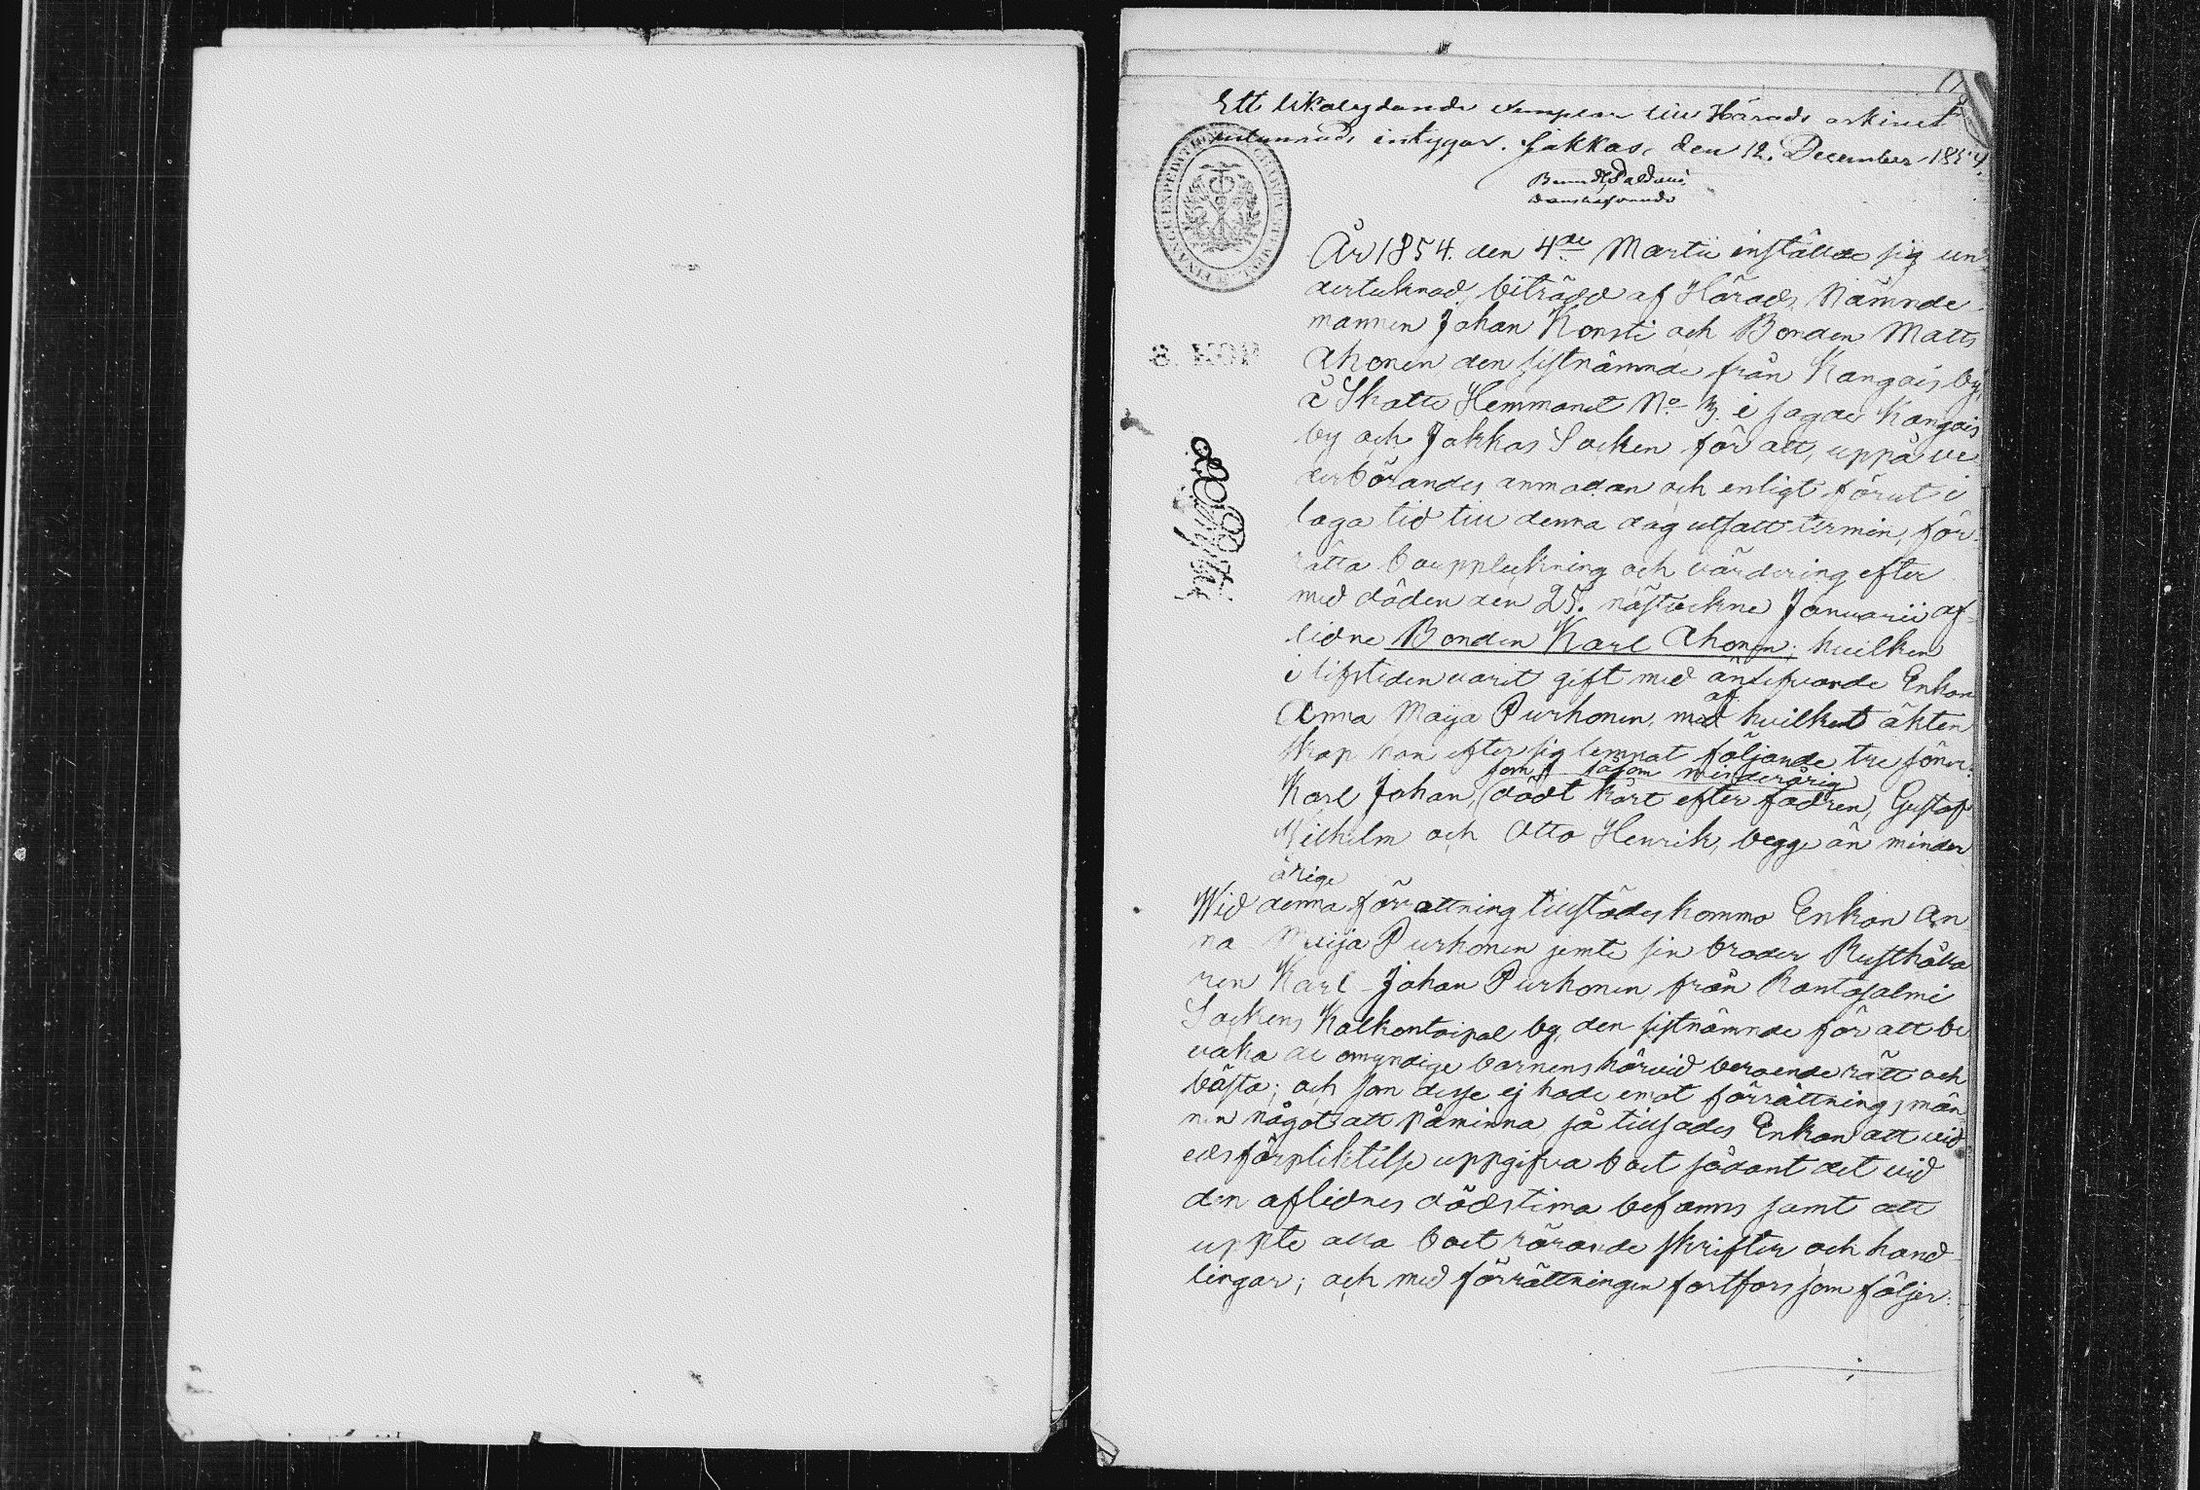 Ett likalydande exemplar till Härads arkivet
inlemnadt, intygar. Jokkas, den 12. December 1854.
8. KOP
År 1854. den 4de Martii inställde sig un
dertecknad, biträdd af Härads Nämnde
mannen Johan Konsti och Bonden Matts
Ahonen den sistnämnde från Kangais by,
å Skatte Hemmanet No 3. i sagde Kangais
by och Jokkas Socken för att, uppå ve
derbörandes anmodan och enligt förut i
laga tid till denna dag utsatt termin, för
rätta bouppteckning och värdering efter
med döden den 25. nästvekne Januarii af
lidne Bonden Karl Ahonen; hvilken
i lifstiden varit gift med änlefvande Enkan
Anna Maija Purhonen, med af hvilket äkten
skap han efter sig lemnat följande tre söner:
som såsom minderårig
Karl Johan, (dödt kort efter fadren, Gustaf
Wilhelm och Otto Henrik, begge än minder
årige
Wid denna förrättning tillstädes kommo Enkan An
na Maija Purhonen jemte sin broder Rusthålla
ren Karl Johan Purhonen från Rantasalmi
Sockens Kolkontaipal by, den sistnämnde för att be
vaka de omyndige barnens härvid beroende rätt och
bästa; och som desse ej hade emot förrättningsmän
nen något att påminna, så tillsades Enkan att vid
edsförpliktelse uppgifva boet sådant det vid
den aflidnes dödstima befanns samt att
uppte alla boet rörande skrifter och hand
lingar; och med förrättningen fortfors som följer: